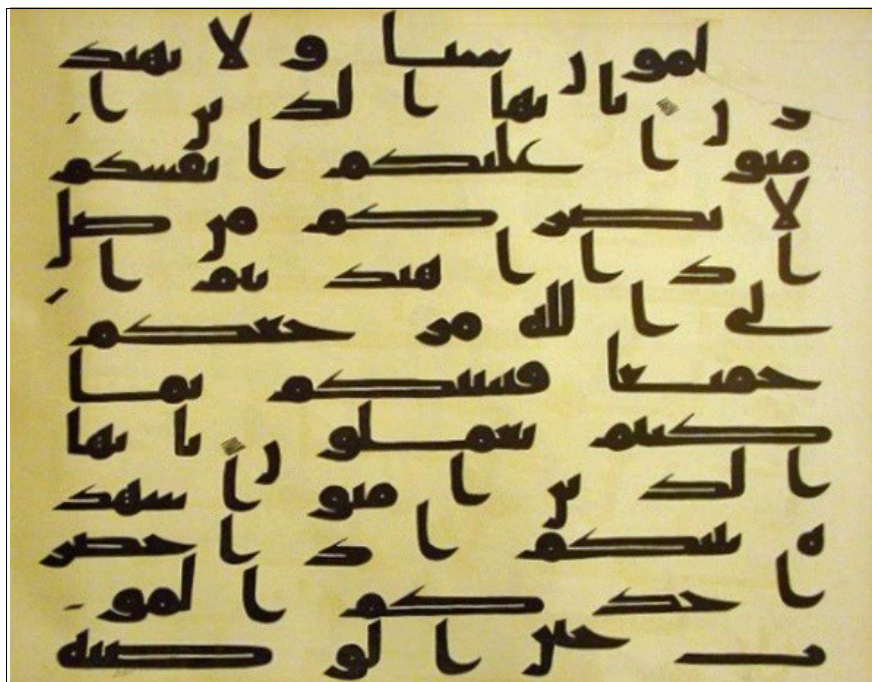 لمون شيا ولا يهتد
ون يايها الذين ا
منوا عليكم انفسكم
لا يضركم من ضل
اذا اهتديتم ا
لى الله مرجعكم
جميعا فينبيكم بما
كنتم تعملون يايها
الذين امنوا شهد
ه بينكم اذا حضر
احدكم المو
ت حين الوصيه